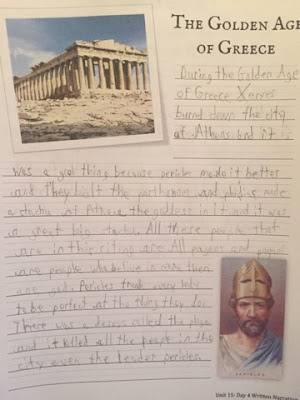 THE GOLDEN AGE
OF GREECE
During the Golden Age
of Greece Xerxes
burnd down the city
of Athens and it
was a god thing because pericles made it better
and They built the parthenon and phidias made
a statu of Athena the goddess in it and it was
a great big statu. All these people that
are in this riting are All pagens and pagens
are people who belive in more then
one god. Pericles trend every body
to be perfect at the thing they do.
There was a deseas called the plage
and it killed all the people in the
city even the leader pericles.
PERICLES
Unit 15: Day 4 Written Narration